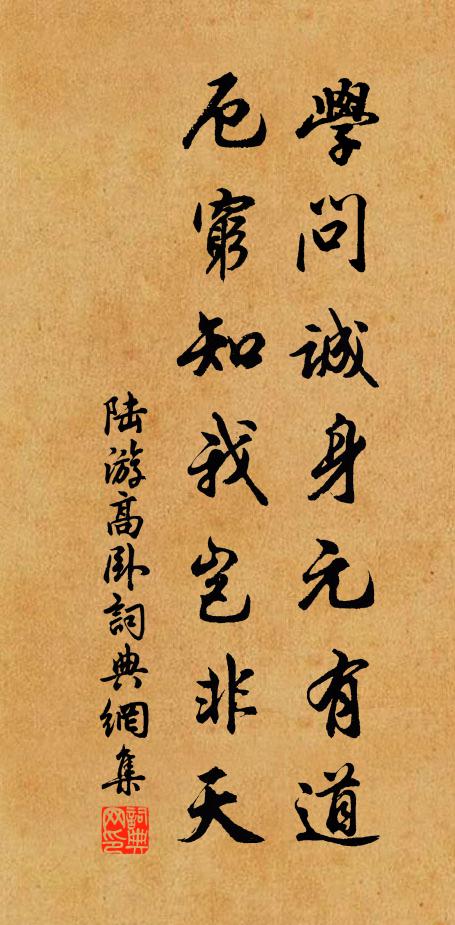 學問誠身元有道
厄窮知我豈非天
陆游高卧詞典網集
詞典网印